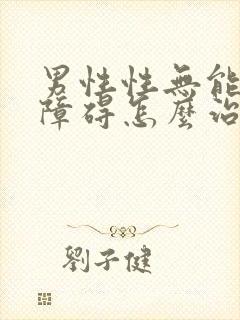 男性性無能
障碍怎麼治
劉子健